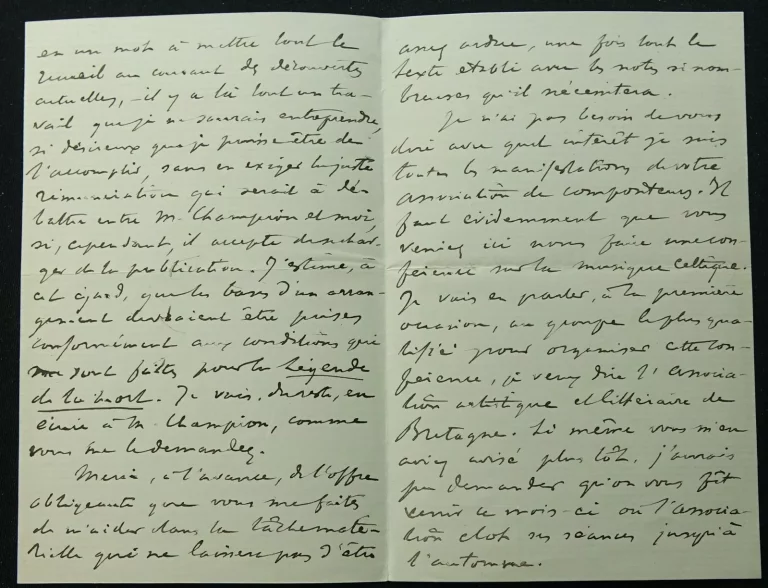 en un mot à mettre tout le
recueil au courant des découvertes
actuelles, — il y a là tout un tra-
vail que je ne saurais entreprendre,
si désireux que je puisse être de
l'accomplir, sans en exiger la juste
rémunération qui serait à dé-
battre entre M. Champion et moi,
si, cependant, il accepte de se char-
ger de la publication. J'estime, à
cet égard, que les bases d'un arran-
gement devraient être prises
conformément aux conditions qui
me sont faites pour la Légende
de la mort. Je vais, du reste, en
écrire à M. Champion, comme
vous me le demandez.
Merci, à l'avance, de l'offre
obligeante que vous me faites
de m'aider dans la tâche maté-
rielle qui ne laissera pas d'être
assez ardue, une fois tout le
texte établi avec les notes si nom-
breuses qu'il nécessitera.
Je n'ai pas besoin de vous
dire avec quel intérêt je suis
toutes les manifestations de votre
association de compositeurs. Il
faut évidemment que vous
veniez ici nous faire une con-
férence sur la musique celtique.
Je vais en parler, à la première
occasion, au groupe le plus qua-
lifié pour organiser cette con-
férence, je veux dire l'Associa-
tion artistique et littéraire de
Bretagne. Si même vous m'en
aviez avisé plus tôt, j'aurais
pu demander qu'on vous fît
venir ce mois-ci où l'associa-
tion clot ses séances jusqu'à
l'automne.